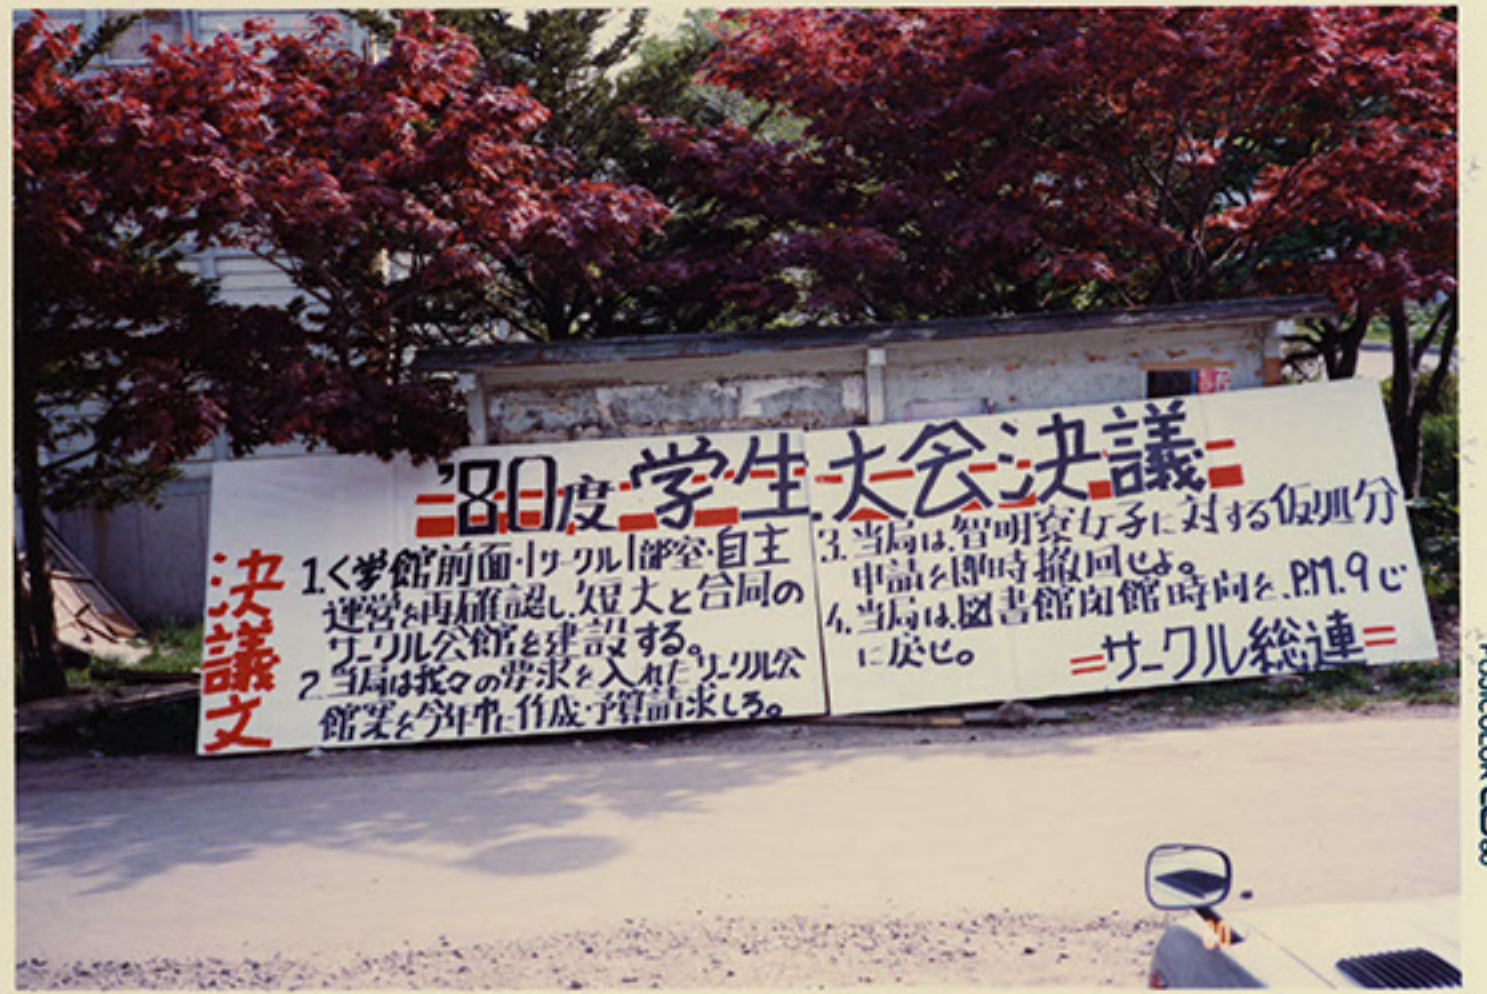 '80度学生大会決議
決議文
1.く学館前面・1サークル1部室・自主
運営を再確認し、短大と合同の
サークル公館を建設する。
2.当局は我々の要求を入れたサークル公
館案を今年中に作成・予算請求しろ。
3.当局は、智明寮女子に対する仮処分
申請を即時撤回せよ。
4.当局は、図書館閉館時間を、P.M.9じ
に戻せ。
=サークル総連=
80